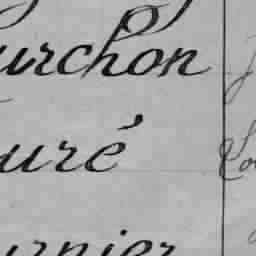 urchon
uré
urnier